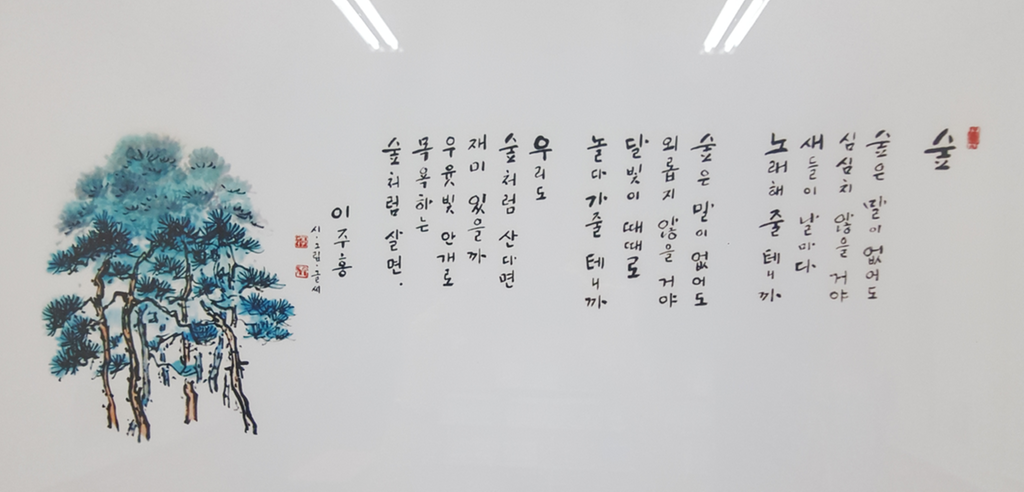 숲
숲은 말이 없어도
심심치 않을 거야
새들이 날마다
노래해 줄 테니까
숲은 말이 없어도
외롭지 않을 거야
달빛이 때때로
놀다 가줄 테니까
우리도
숲처럼 산다면
재미 있을까
우윳빛 안개로
목욕하는
숲처럼 살면.
이주홍
시·그림·글씨